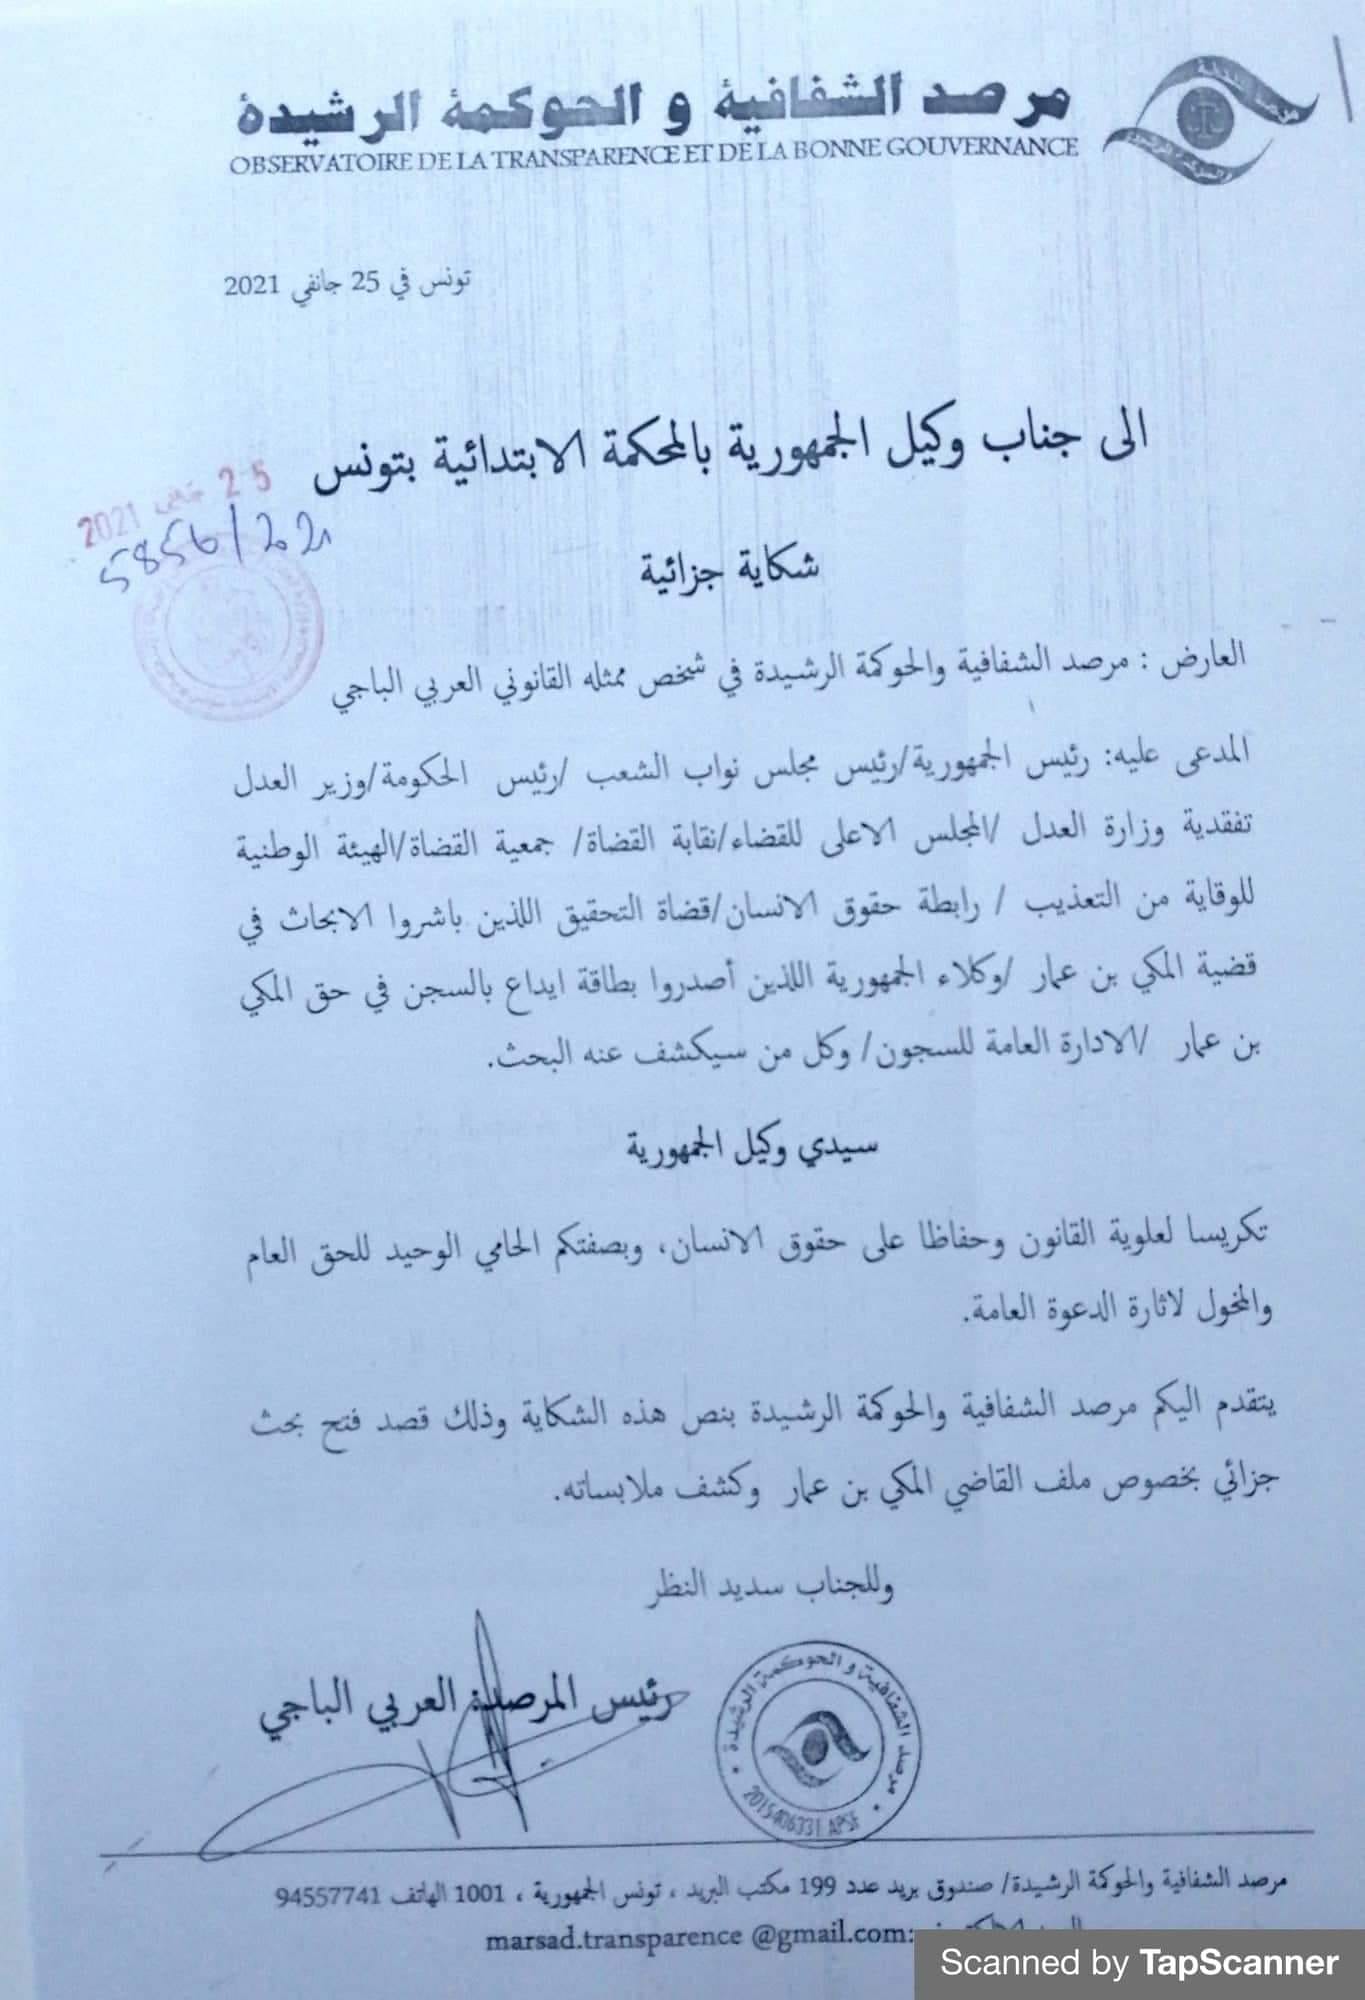 مرصد الشفافية و الحوكمة الرشيدة
OBSERVATOIRE DE LA TRANSPARENCE ET DE LA BONNE GOUVERNANCE
تونس في 25 جانفي 2021
الى جناب وكيل الجمهورية بالمحكمة الابتدائية بتونس
25 جانفي 2021
5856/2021
شكاية جزائية
العارض : مرصد الشفافية والحوكمة الرشيدة في شخص ممثله القانوني العربي الباجي
المدعى عليه: رئيس الجمهورية/رئيس مجلس نواب الشعب /رئيس الحكومة/وزير العدل
تفقدية وزارة العدل /المجلس الاعلى للقضاء/نقابة القضاة/ جمعية القضاة/الهيئة الوطنية
للوقاية من التعذيب / رابطة حقوق الانسان/قضاة التحقيق اللذين باشروا الابحاث في
قضية المكي بن عمار /وكلاء الجمهورية اللذين أصدروا بطاقة ايداع بالسجن في حق المكي
بن عمار /الادارة العامة للسجون/ وكل من سيكشف عنه البحث.
سيدي وكيل الجمهورية
تكريسا لعلوية القانون وحفاظا على حقوق الانسان، وبصفتكم الحامي الوحيد للحق العام
والمخول لاثارة الدعوة العامة.
يتقدم اليكم مرصد الشفافية والحوكمة الرشيدة بنص هذه الشكاية وذلك قصد فتح بحث
جزائي بخصوص ملف القاضي المكي بن عمار وكشف ملابساته.
وللجناب سديد النظر
رئيس المرصد: العربي الباجي
مرصد الشفافية و الحوكمة الرشيدة
2015406331 APSF
مرصد الشفافية والحوكمة الرشيدة/ صندوق بريد عدد 199 مكتب البريد ، تونس الجمهورية ، 1001 الهاتف 94557741
marsad.transparence @gmail.com:
Scanned by TapScanner